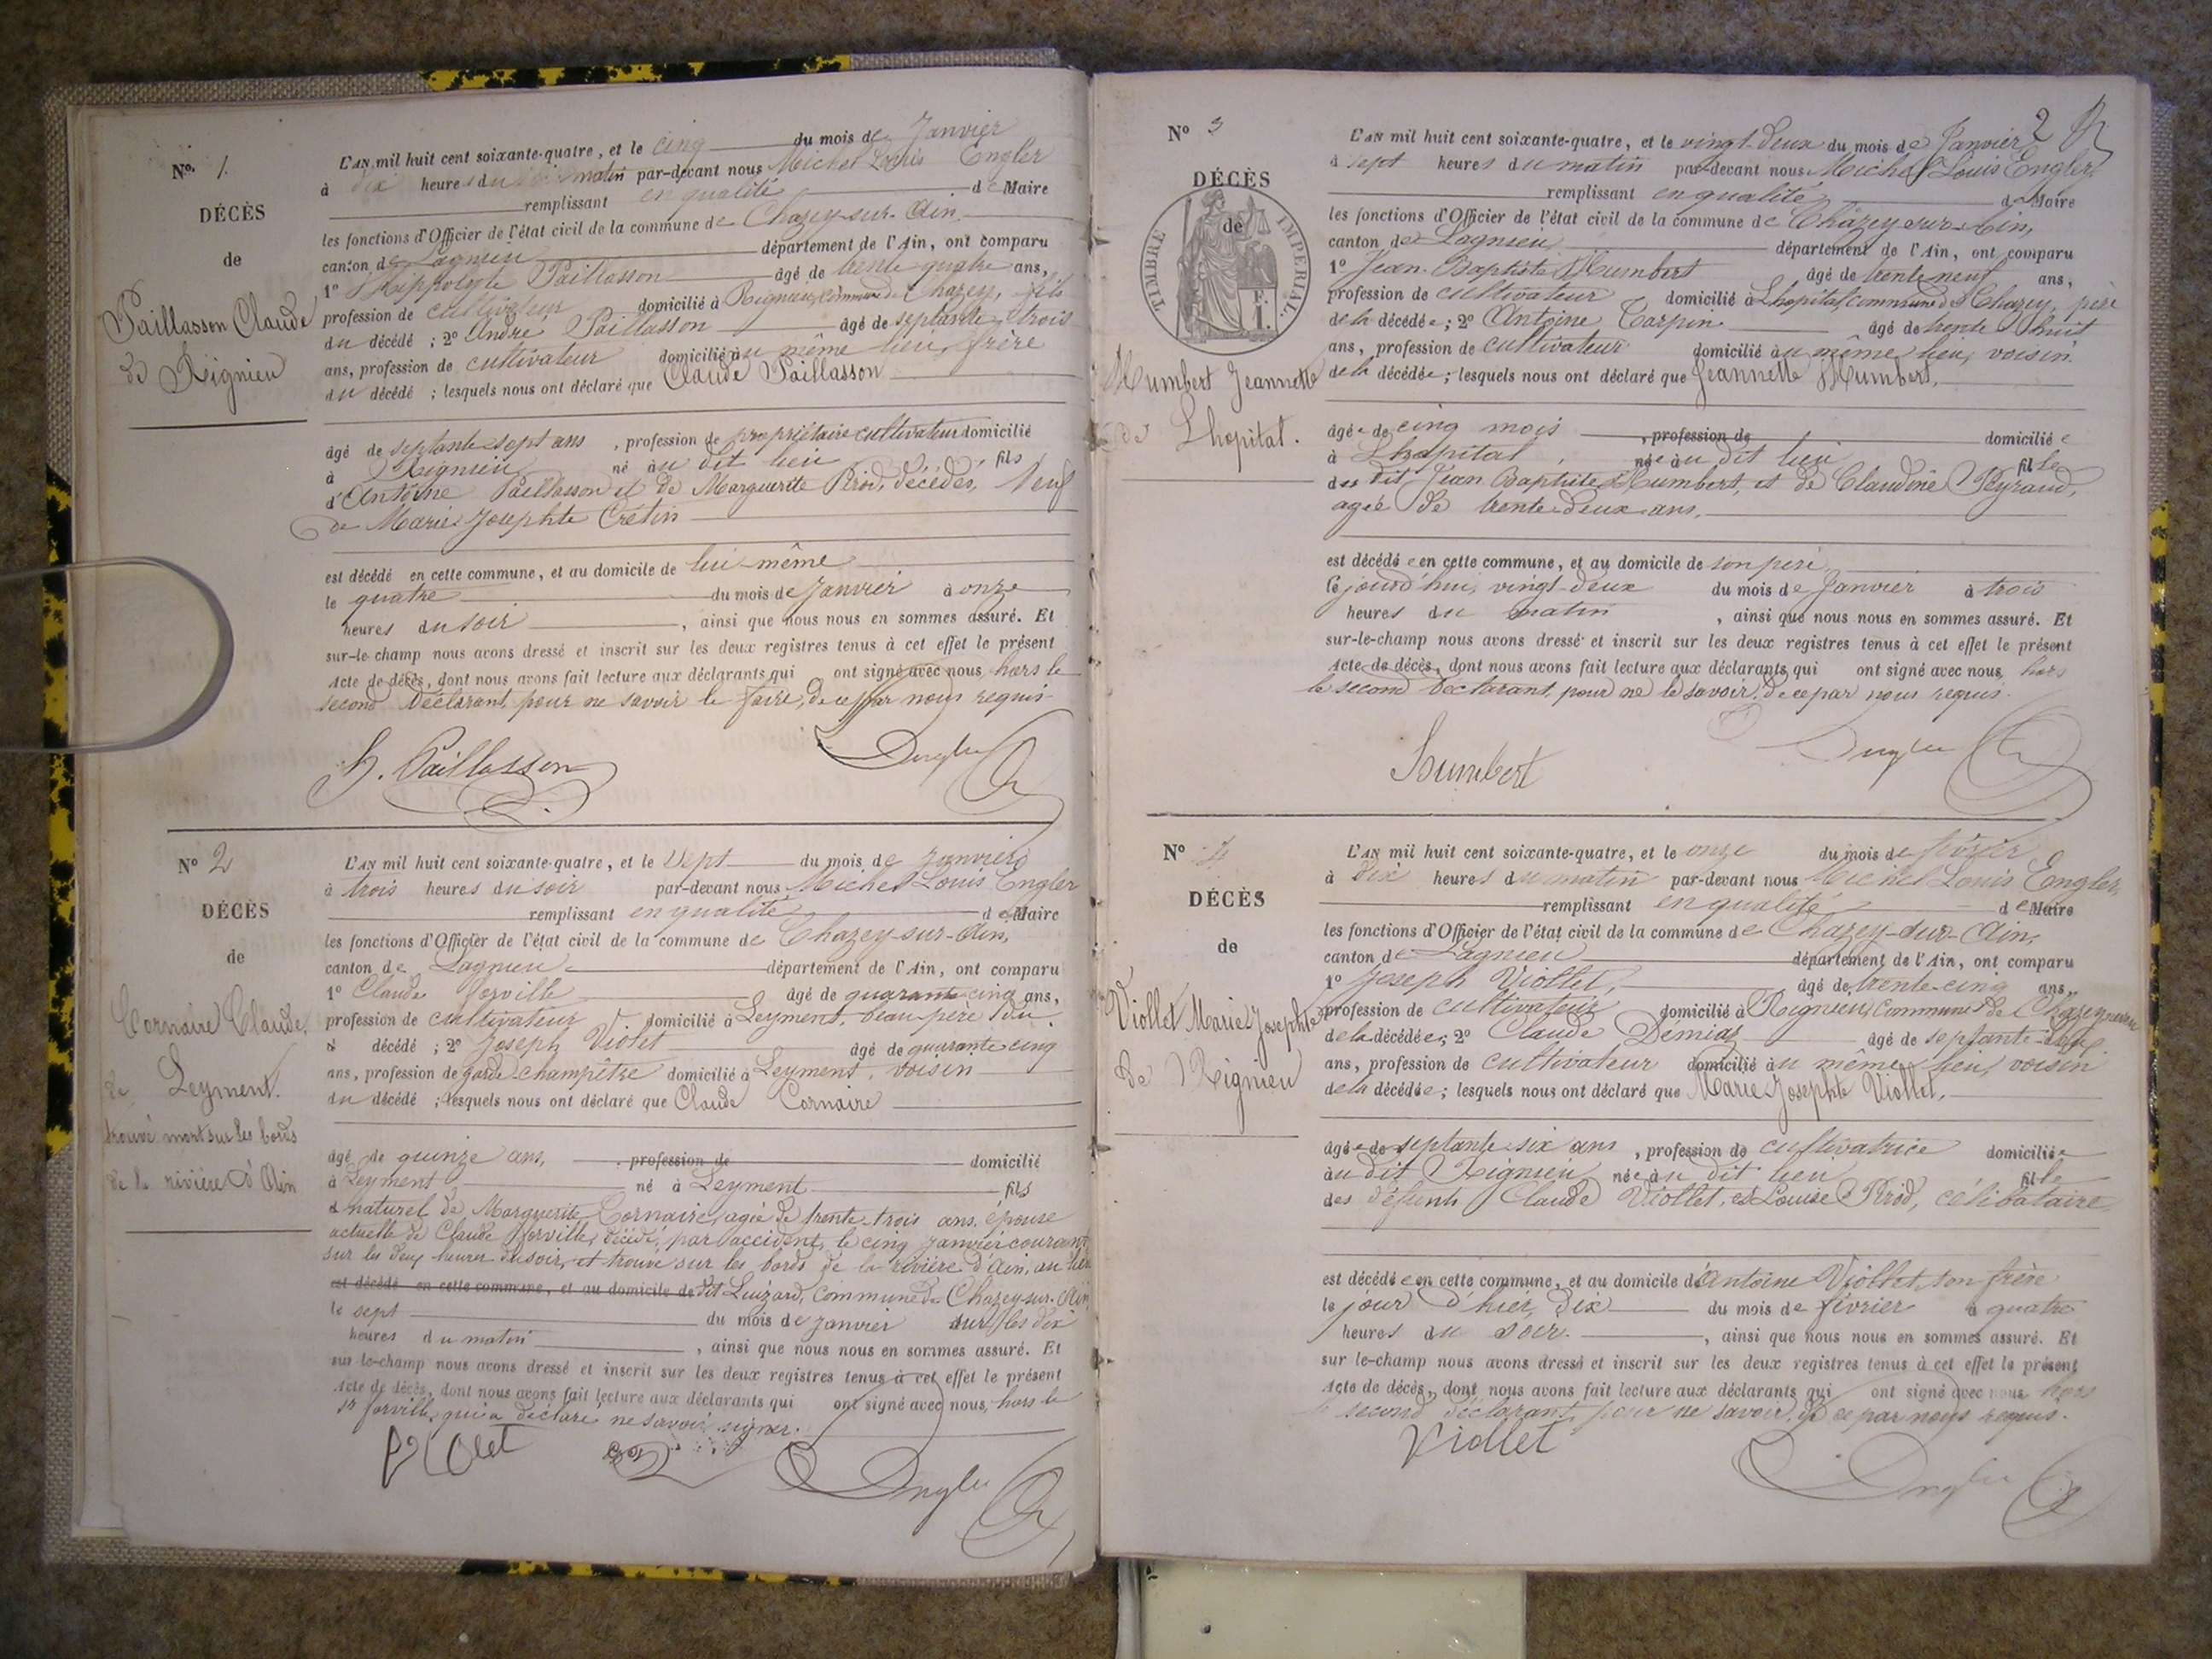 N° 1.
DÉCÈS
de
Paillasson Claude
de Rignieu
L'AN mil huit cent soixante-quatre, et le cinq du mois de Janvier
à dix heures du matin par-devant nous Michel Louis Engler
remplissant en qualité de Maire
les fonctions d'Officier de l'état civil de la commune de Chazey-sur-Ain,
canton de Lagnieu département de l'Ain, ont comparu
1° Hippolyte Paillasson âgé de trente quatre ans,
profession de cultivateur domicilié à Rignieu, commune de Chazey, fils
du décédé ; 2° André Paillasson âgé de septante trois
ans, profession de cultivateur domicilié au même lieu, frère
du décédé ; lesquels nous ont déclaré que Claude Paillasson
âgé de septante-sept ans, profession de propriétaire cultivateur domicilié
à Rignieu, né au dit lieu, fils
d'Antoine Paillasson et de Marguerite Prod, décédés, veuf
de Marie Josephte Crétin
est décédé en cette commune, et au domicile de lui-même
le quatre du mois de Janvier à onze
heures du soir, ainsi que nous nous en sommes assuré. Et
sur-le-champ nous avons dressé et inscrit sur les deux registres tenus à cet effet le présent
Acte de décès, dont nous avons fait lecture aux déclarants qui ont signé avec nous hors le
second Déclarant, pour ne savoir le faire, de ce par nous requis
H. Paillasson Engler
N° 2
DÉCÈS
de
Cornaire Claude,
de Leyment.
trouvé mort sur les bords
de la rivière d'Ain
L'AN mil huit cent soixante-quatre, et le Sept du mois de Janvier
à trois heures du soir par-devant nous Michel Louis Engler
remplissant en qualité de Maire
les fonctions d'Officier de l'état civil de la commune de Chazey-sur-Ain,
canton de Lagnieu département de l'Ain, ont comparu
1° Claude Jorville âgé de quarante-cinq ans,
profession de cultivateur domicilié à Leyment, beau-père du
décédé ; 2° Joseph Violet âgé de quarante cinq
ans, profession de garde-champêtre domicilié à Leyment, voisin
du décédé ; lesquels nous ont déclaré que Claude Cornaire
âgé de quinze ans, profession de domicilié
à Leyment né à Leyment fils
naturel de Marguerite Cornaire, agée de trente-trois ans, épouse
actuelle de Claude Jorville, décédé, par accident, le cinq Janvier courant
sur les deux heures du soir, et trouvé sur les bords de la rivière d'Ain, au lieu
est décédé en cette commune, et au domicile de dit Luizard, commune de Chazey-sur-Ain
le sept du mois de Janvier sur les dix
heures du matin, ainsi que nous nous en sommes assuré. Et
sur-le-champ nous avons dressé et inscrit sur les deux registres tenus à cet effet le présent
Acte de décès, dont nous avons fait lecture aux déclarants qui ont signé avec nous, hors le
sr Jorville, qui a déclaré ne savoir signer.
Engler
2
N° 3
DÉCÈS
de
TIMBRE IMPÉRIAL.
Humbert Jeannette
de Lhopital.
L'AN mil huit cent soixante-quatre, et le vingt-deux du mois de Janvier
à sept heures du matin par-devant nous Michel Louis Engler,
remplissant en qualité de Maire
les fonctions d'Officier de l'état civil de la commune de Chazey-sur-Ain,
canton de Lagnieu département de l'Ain, ont comparu
1° Jean-Baptiste Humbert âgé de trente-neuf ans,
profession de cultivateur domicilié à Lhopital, commune de Chazey, père
de la décédée ; 2° Antoine Carpin âgé de trente huit
ans, profession de cultivateur domicilié au même lieu, voisin
de la décédée ; lesquels nous ont déclaré que Jeannette Humbert,
âgée de cinq mois, profession de domiciliée
à Lhopital, née au dit lieu fille
du dit Jean Baptiste Humbert, et de Claudine Peyraud,
agée de trente-deux ans,
est décédée en cette commune, et au domicile de son père
le jourd'hui, vingt-deux du mois de Janvier à trois
heures du matin, ainsi que nous nous en sommes assuré. Et
sur-le-champ nous avons dressé et inscrit sur les deux registres tenus à cet effet le présent
Acte de décès, dont nous avons fait lecture aux déclarants qui ont signé avec nous, hors
le second Déclarant, pour ne le savoir, de ce par nous requis.
Humbert Engler
N° 4
DÉCÈS
de
Viollet Marie Josephte
de Rignieu
L'AN mil huit cent soixante-quatre, et le onze du mois de février
à dix heures du matin par-devant nous Michel Louis Engler,
remplissant en qualité de Maire
les fonctions d'Officier de l'état civil de la commune de Chazey-sur-Ain,
canton de Lagnieu département de l'Ain, ont comparu
1° Joseph Viollet, âgé de trente-cinq ans,
profession de cultivateur domicilié à Rignieu, commune de Chazey, neveu
de la décédée ; 2° Claude Demias âgé de septante-
ans, profession de cultivateur domicilié au même lieu, voisin
de la décédée ; lesquels nous ont déclaré que Marie Josephte Viollet,
âgée de septante-six ans, profession de cultivatrice domiciliée
au dit Rignieu, née au dit lieu fille
des défunts Claude Viollet, et Louise Prod, célibataire,
est décédée en cette commune, et au domicile d'Antoine Viollet, son frère
le jour d'hier, dix du mois de février à quatre
heures du soir, ainsi que nous nous en sommes assuré. Et
sur-le-champ nous avons dressé et inscrit sur les deux registres tenus à cet effet le présent
Acte de décès, dont nous avons fait lecture aux déclarants qui ont signé avec nous hors
le second déclarant, pour ne savoir, de ce par nous requis.
Viollet Engler